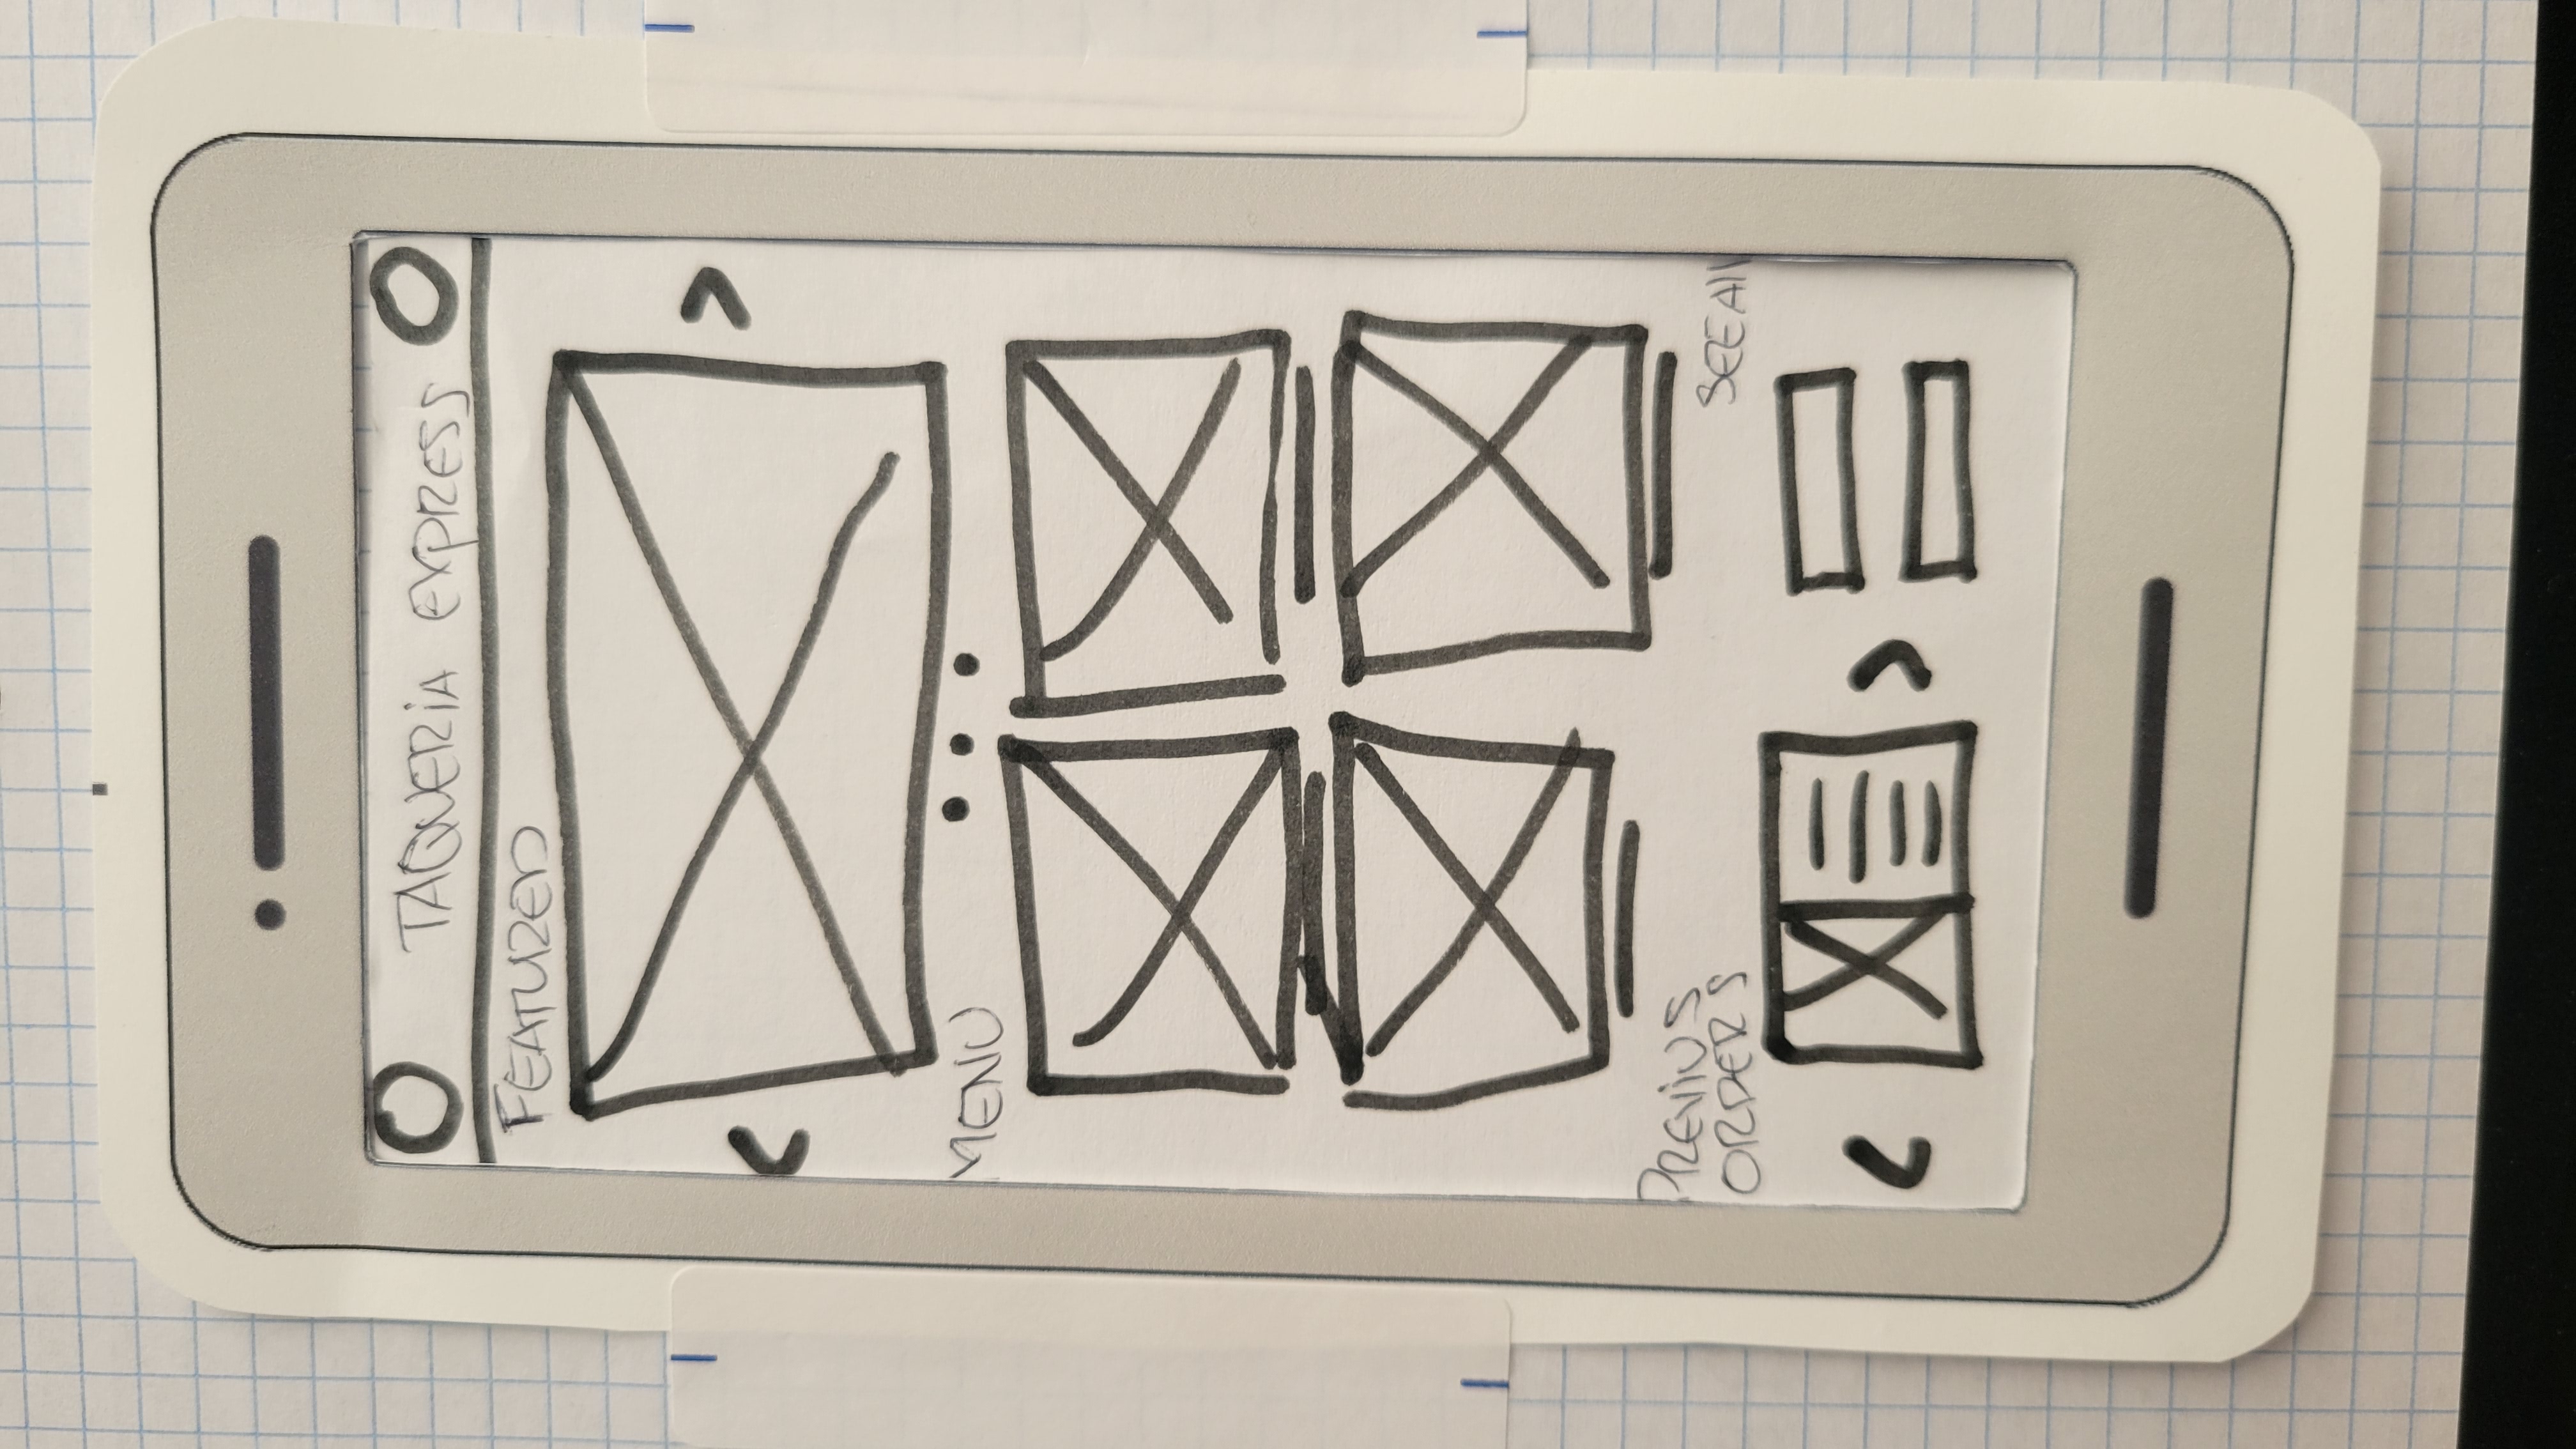 TAQUERiA EXPRESS
FEATURED
MENU
PREViUS
ORDERS
SEE All